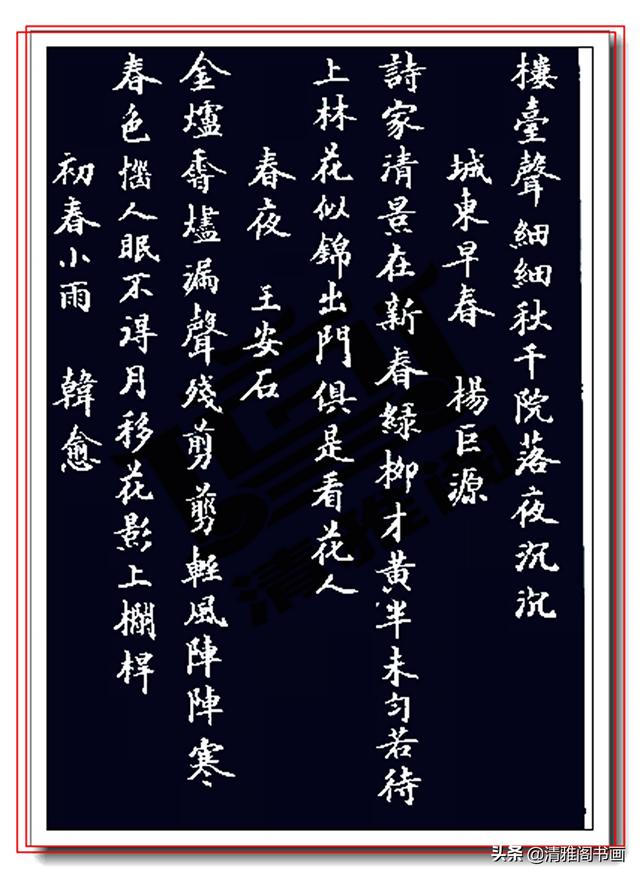 樓臺聲細細秋千院落夜沉沉
城東早春 楊巨源
詩家清景在新春綠柳才黃半未勻若待
上林花似錦出門俱是看花人
春夜 王安石
金爐香燼漏聲殘剪剪輕風陣陣寒
春色惱人眠不得月移花影上欄桿
初春小雨 韓愈
清雅阁
头条@清雅阁书画